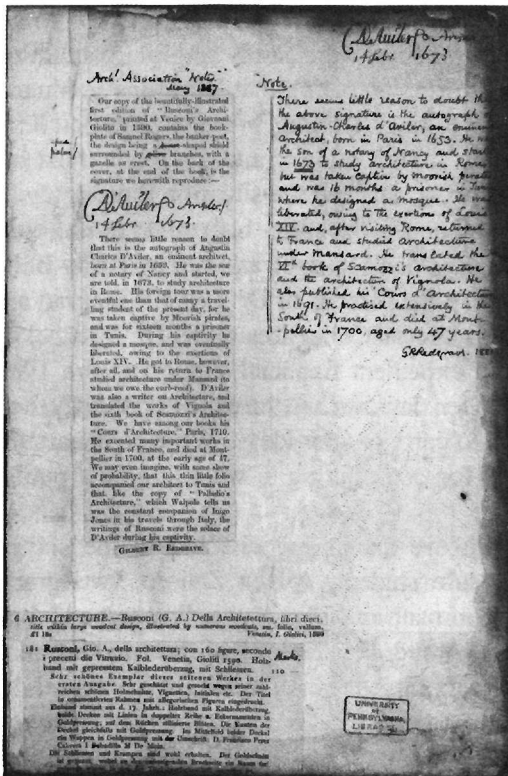 D'Aviler
14 febr 1673
Arch! Association "Notes"
May 1887
Our copy of the beautifully-illustrated
first edition of "Rusconi's Archi-
tecture," printed at Venice by Giovanni
Giolito in 1590, contains the book-
plate of Samuel Rogers, the banker-poet,
the design being a shaped shield
surrounded by branches, with a
gazelle as crest. On the back of the
cover, at the end of the book, is the
signature we herewith reproduce:—
palm/
D'Aviler
14 febr 1673.
There seems little reason to doubt
that this is the autograph of Augustin
Charles D'Aviler, an eminent architect,
born at Paris in 1653. He was the son
of a notary of Nancy and started, we
are told, in 1673, to study architecture
in Rome. His foreign tour was a more
eventful one than that of many a travel-
ling student of the present day, for he
was taken captive by Moorish pirates,
and was for sixteen months a prisoner
in Tunis. During his captivity he
designed a mosque, and was eventually
liberated, owing to the exertions of
Louis XIV. He got to Rome, however,
after all, and on his return to France
studied architecture under Mansard (to
whom we owe the curb-roof). D'Aviler
was also a writer on Architecture, and
translated the works of Vignola and
the sixth book of Scamozzi's Architec-
ture. We have among our books his
"Cours d'Architecture," Paris, 1710.
He executed many important works in
the South of France, and died at Mont-
pellier in 1700, at the early age of 47.
We may even imagine, with some show
of probability, that this thin little folio
accompanied our architect to Tunis and
that, like the copy of "Palladio's
Architecture," which Walpole tells us
was the constant companion of Inigo
Jones in his travels through Italy, the
writings of Rusconi were the solace of
D'Aviler during his captivity.
GILBERT R. REDGRAVE.
"Note.
There seems little reason to doubt
the above signature is the autograph
Augustin-Charles d'Aviler, an eminent
architect, born in Paris in 1653. He
the son of a notary of Nancy and
in 1673 to study architecture in Rome
but was taken captive by Moorish pirates
and was 16 months a prisoner in
where he designed a mosque. He was
liberated, owing to the exertions of Louis
XIV. and, after visiting Rome, returned
to France and studied architecture
under Mansard. He translated the
VIth book of Scamozzi's architecture
and the architecture of Vignola. He
also published his 'Cours d'Architecture
in 1691. He practised extensively in the
South of France and died at Mont-
pellier in 1700, aged only 47 years.
GR Redgrave.
6 ARCHITECTURE.—Rusconi (G. A.) Della Architettura, libri dieci,
title within large woodcut design, illustrated by numerous woodcuts, sm. folio, vellum.
£1 18s Venetia, I. Gioliti, 1590
181 Rusconi, Gio. A., della architettura; con 160 figure, secondo
i precetti die Vitruvio. Fol. Venetia, Gioliti 1590. Holz-
band mit gepresstem Kalblederüberzug, mit Schliessen.
Marks.
110
Sehr schönes Exemplar dieses seltenen Werkes in der
ersten Ausgabe. Sehr geschätzt und gesucht wegen seiner zahl-
reichen schönen Holzschnitte, Vignetten, Initialen etc. Der Titel
in ornamentierten Rahmen mit allegorischen Figuren eingedruckt.
Einband stammt aus d. 17. Jahrh.: Holzband mit Kalblederüberzug,
beide Deckel mit Linien in doppelter Reihe u. Eckornamenten in
Goldpressung; auf dem Rücken stilisierte Blüten. Die Kanten der
Deckel gleichfalls mit Goldpressung. Im Mittelfeld beider Deckel
ein Wappen in Goldpressung mit der Umschrift: D. Francisco Fraez
Cabrera I Bobadilla
Die Schliessen und Krampen sind wohl erhalten. Der Goldschnitt
UNIVERSITY
OF
PENNSYLVANIA
LIBRARY